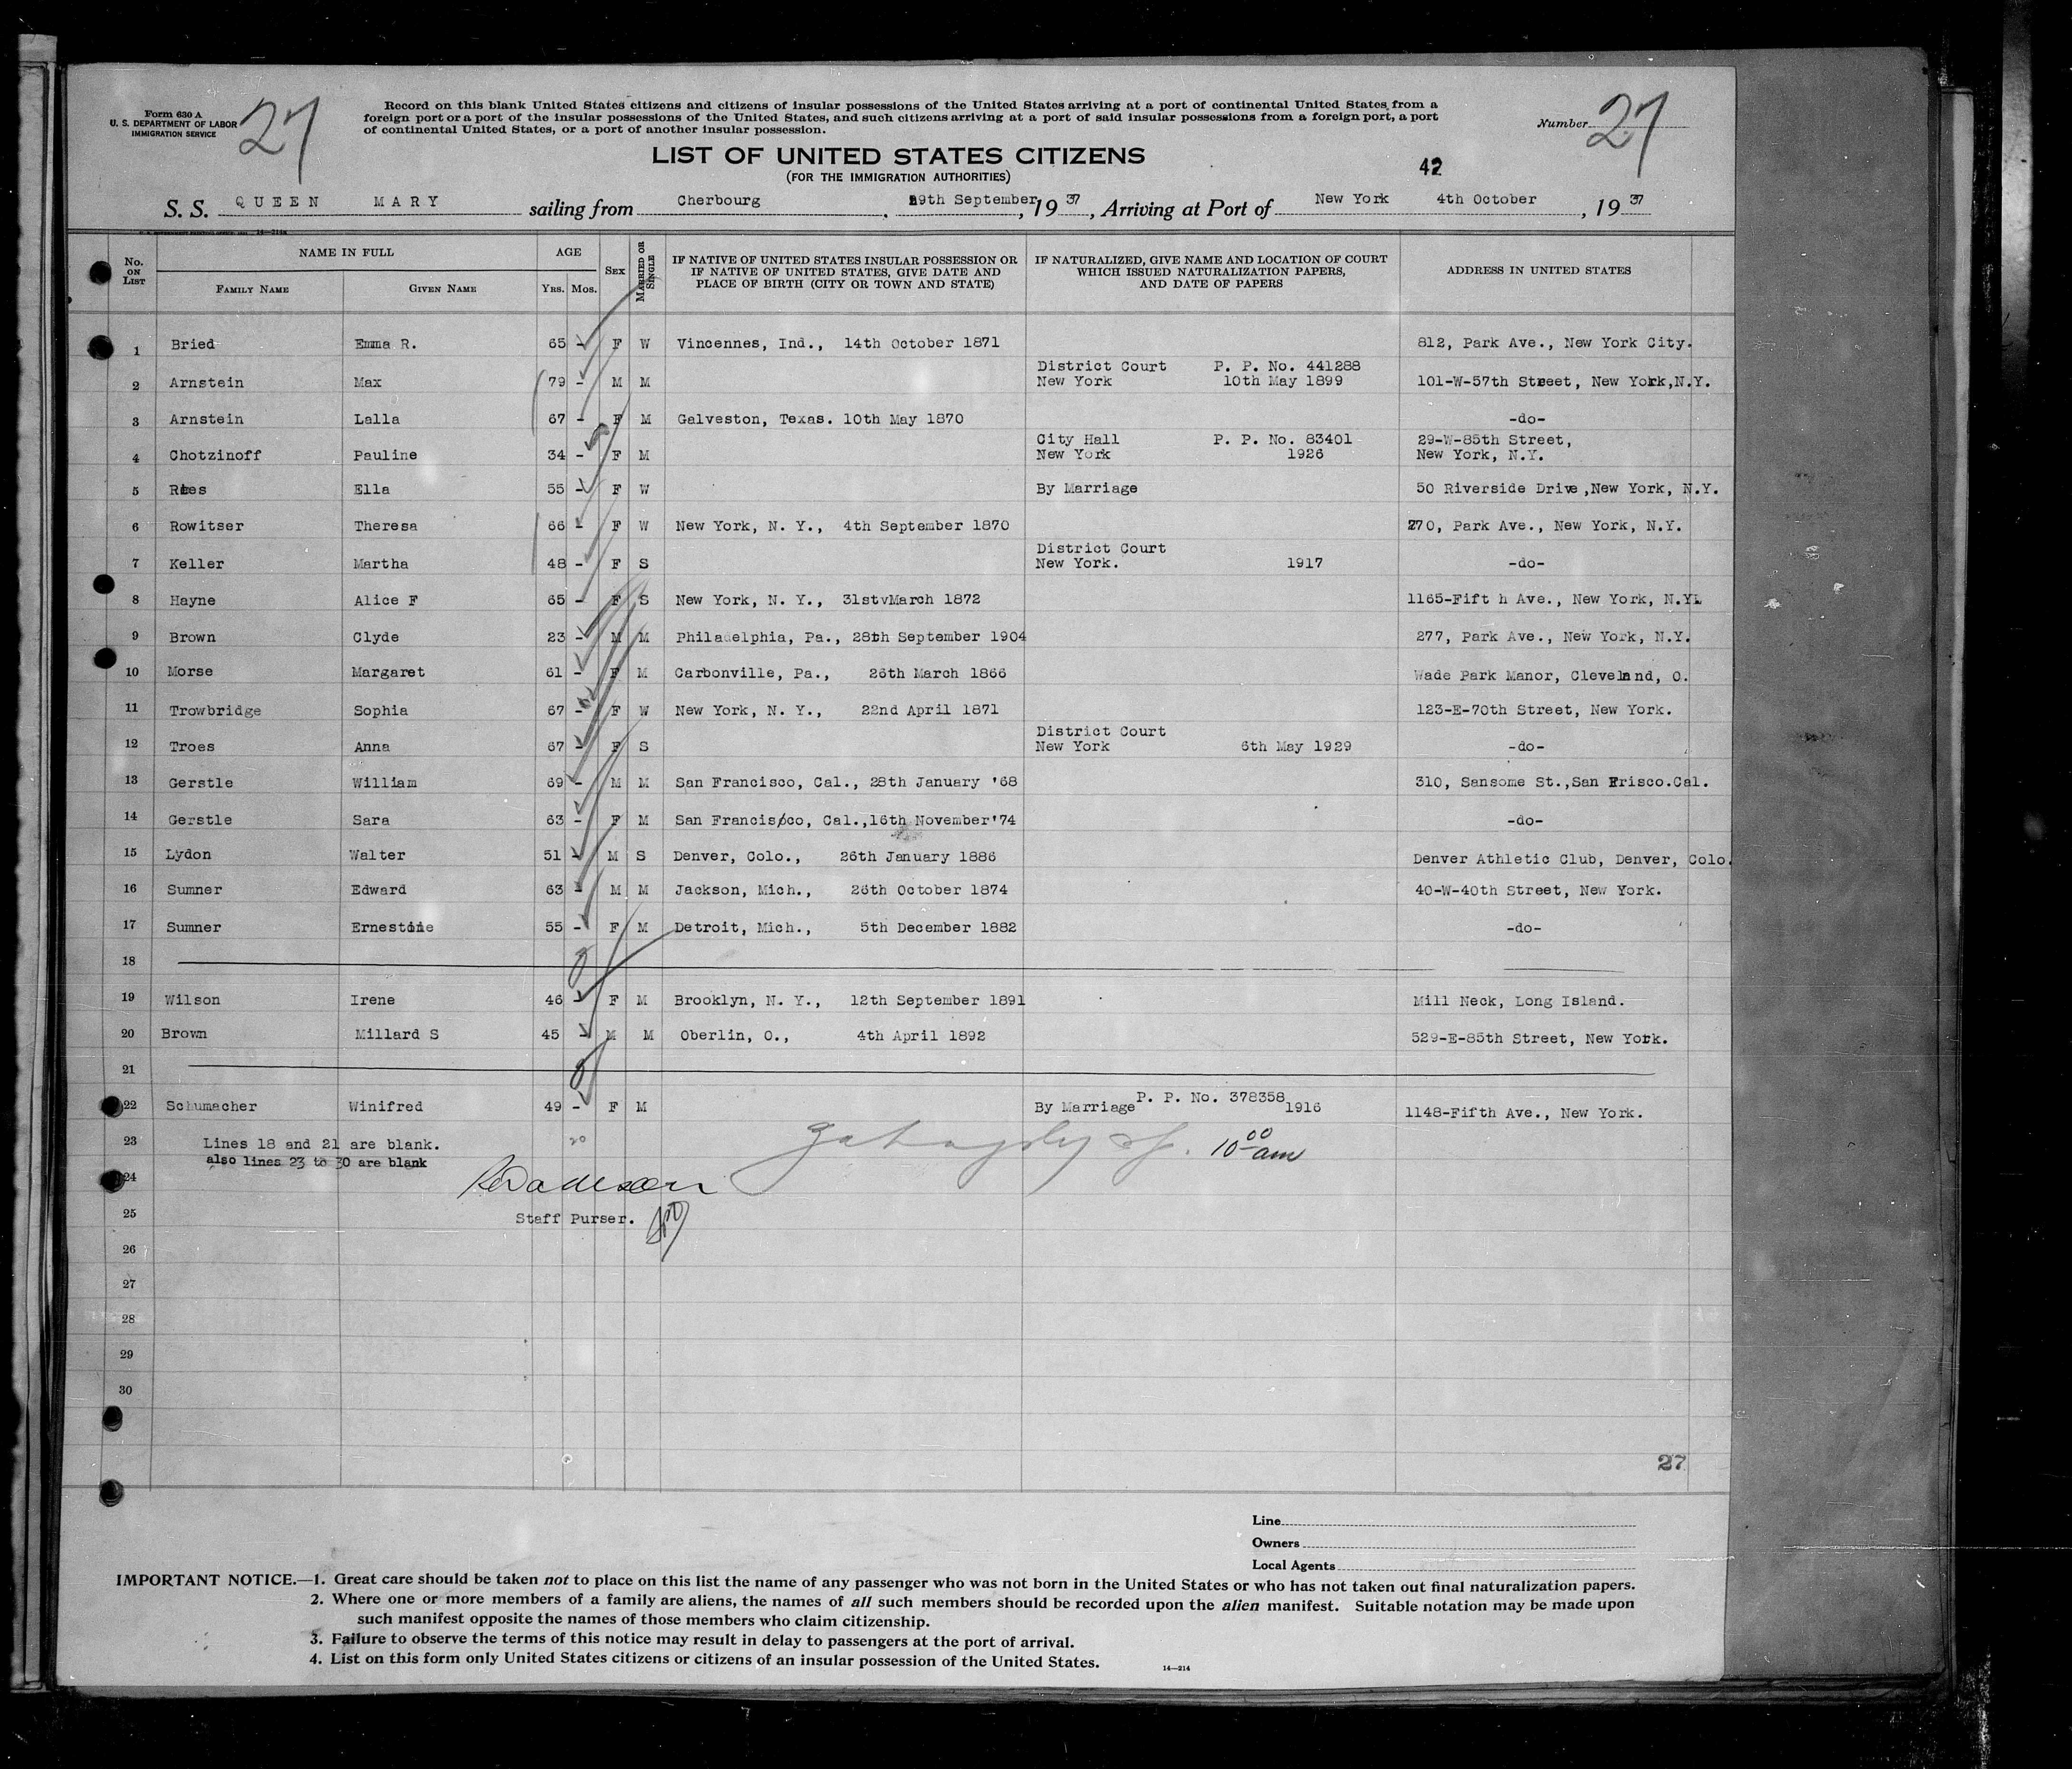 Form 630 A
U. S. DEPARTMENT OF LABOR
IMMIGRATION SERVICE
27
Record on this blank United States citizens and citizens of insular possessions of the United States arriving at a port of continental United States from a
foreign port or a port of the insular possessions of the United States, and such citizens arriving at a port of said insular possessions from a foreign port, a port
of continental United States, or a port of another insular possession.
Number 27
LIST OF UNITED STATES CITIZENS
(FOR THE IMMIGRATION AUTHORITIES)
42
S. S. QUEEN MARY sailing from Cherbourg, 29th September, 1937, Arriving at Port of New York 4th October, 1937
No. ON LIST NAME IN FULL FAMILY NAME GIVEN NAME AGE YRS. MOS. SEX MARRIED OR SINGLE IF NATIVE OF UNITED STATES INSULAR POSSESSION OR IF NATIVE OF UNITED STATES, GIVE DATE AND PLACE OF BIRTH (CITY OR TOWN AND STATE) IF NATURALIZED, GIVE NAME AND LOCATION OF COURT WHICH ISSUED NATURALIZATION PAPERS, AND DATE OF PAPERS ADDRESS IN UNITED STATES
1 Bried Emma R. 65 - F W Vincennes, Ind., 14th October 1871 812, Park Ave., New York City.
District Court P. P. No. 441288
2 Arnstein Max 79 - M M New York 10th May 1899 101-W-57th Street, New York,N.Y.
3 Arnstein Lalla 67 - F M Galveston, Texas. 10th May 1870 -do-
City Hall P. P. No. 83401 29-W-85th Street,
4 Chotzinoff Pauline 34 - F M New York 1926 New York, N.Y.
5 Rees Ella 55 - F W By Marriage 50 Riverside Drive ,New York, N.Y.
6 Rowitser Theresa 66 - F W New York, N. Y., 4th September 1870 270, Park Ave., New York, N.Y.
District Court
7 Keller Martha 48 - F S New York. 1917 -do-
8 Hayne Alice F 65 - F S New York, N. Y., 31stvMarch 1872 1165-Fift h Ave., New York, N.Y.
9 Brown Clyde 23 - M M Philadelphia, Pa., 28th September 1904 277, Park Ave., New York, N.Y.
10 Morse Margaret 61 - F M Carbonville, Pa., 26th March 1866 Wade Park Manor, Cleveland, O.
11 Trowbridge Sophia 67 - F W New York, N. Y., 22nd April 1871 123-E-70th Street, New York.
District Court
12 Troes Anna 67 - F S New York 6th May 1929 -do-
13 Gerstle William 69 - M M San Francisco, Cal., 28th January '68 310, Sansome St.,San Frisco.Cal.
14 Gerstle Sara 63 - F M San Francisco, Cal.,16th November'74 -do-
15 Lydon Walter 51 - M S Denver, Colo., 26th January 1886 Denver Athletic Club, Denver, Colo.
16 Sumner Edward 63 - M M Jackson, Mich., 26th October 1874 40-W-40th Street, New York.
17 Sumner Ernestine 55 - F M Detroit, Mich., 5th December 1882 -do-
18
19 Wilson Irene 46 - F M Brooklyn, N. Y., 12th September 1891 Mill Neck, Long Island.
20 Brown Millard S 45 - M M Oberlin, O., 4th April 1892 529-E-85th Street, New York.
21
22 Schumacher Winifred 49 - F M By Marriage P. P. No. 378358 1916 1148-Fifth Ave., New York.
23 Lines 18 and 21 are blank. 20 10 00 am
also lines 23 to 30 are blank
24
25 Staff Purser.
26
27
28
29
30
27
Line
Owners
Local Agents
IMPORTANT NOTICE.—1. Great care should be taken not to place on this list the name of any passenger who was not born in the United States or who has not taken out final naturalization papers.
2. Where one or more members of a family are aliens, the names of all such members should be recorded upon the alien manifest. Suitable notation may be made upon
such manifest opposite the names of those members who claim citizenship.
3. Failure to observe the terms of this notice may result in delay to passengers at the port of arrival.
4. List on this form only United States citizens or citizens of an insular possession of the United States.
14—214